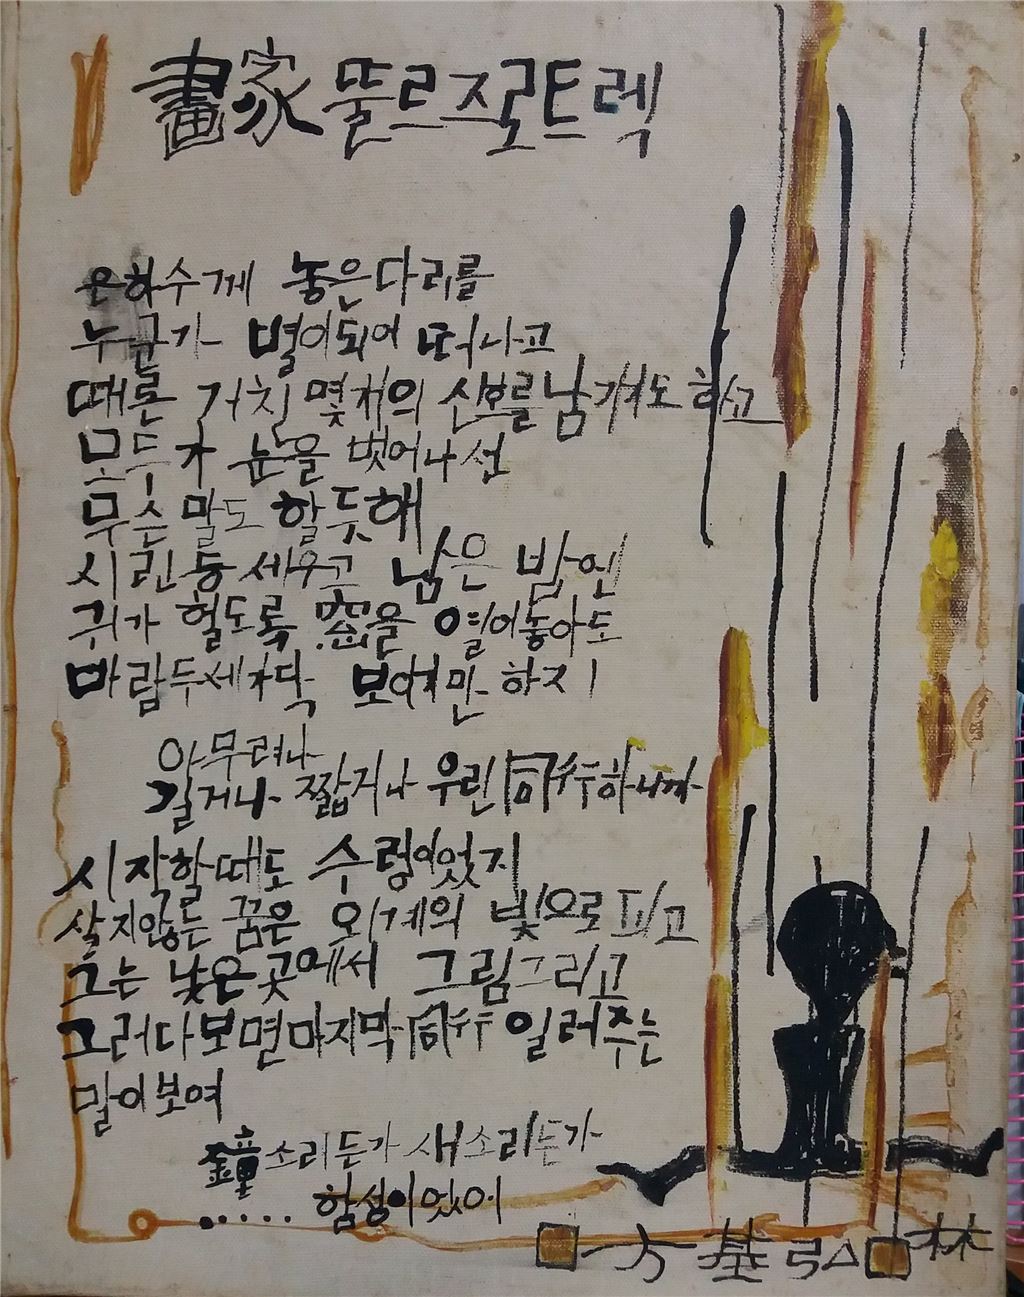 畫家 뚤르즈로트렉
은하수께 놓은다리를
누군가 별이되어 떠나고
때론 거치 몇개의 신호를 남겨도 하고
모두가 눈을 벗어나선
무슨 말도 할듯해
시린등 세우고 남은 밤엔
귀가 헐도록 窓을 열어놓아도
바람두세가닥 보여만 하지!
아무려나
길거나 짧거나 우린 同行하니까
시작할때도 수렁이었지
삭지않는 꿈은 외계의 빛으로 피고
그는 낮은곳에서 그림그리고
그러다보면마지막 同行 일러주는
말이보여
鐘소리든가 새소리든가
..... 함성이었어
方基弘 林